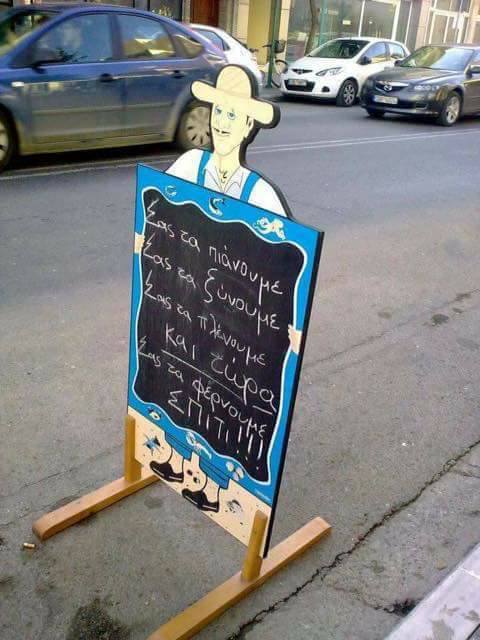 Σας τα πιάνουμε
Σας τα ξύνουμε
Σας τα πλένουμε
Και τώρα
Σας τα φέρνουμε
ΣΠΙΤΙ!!!